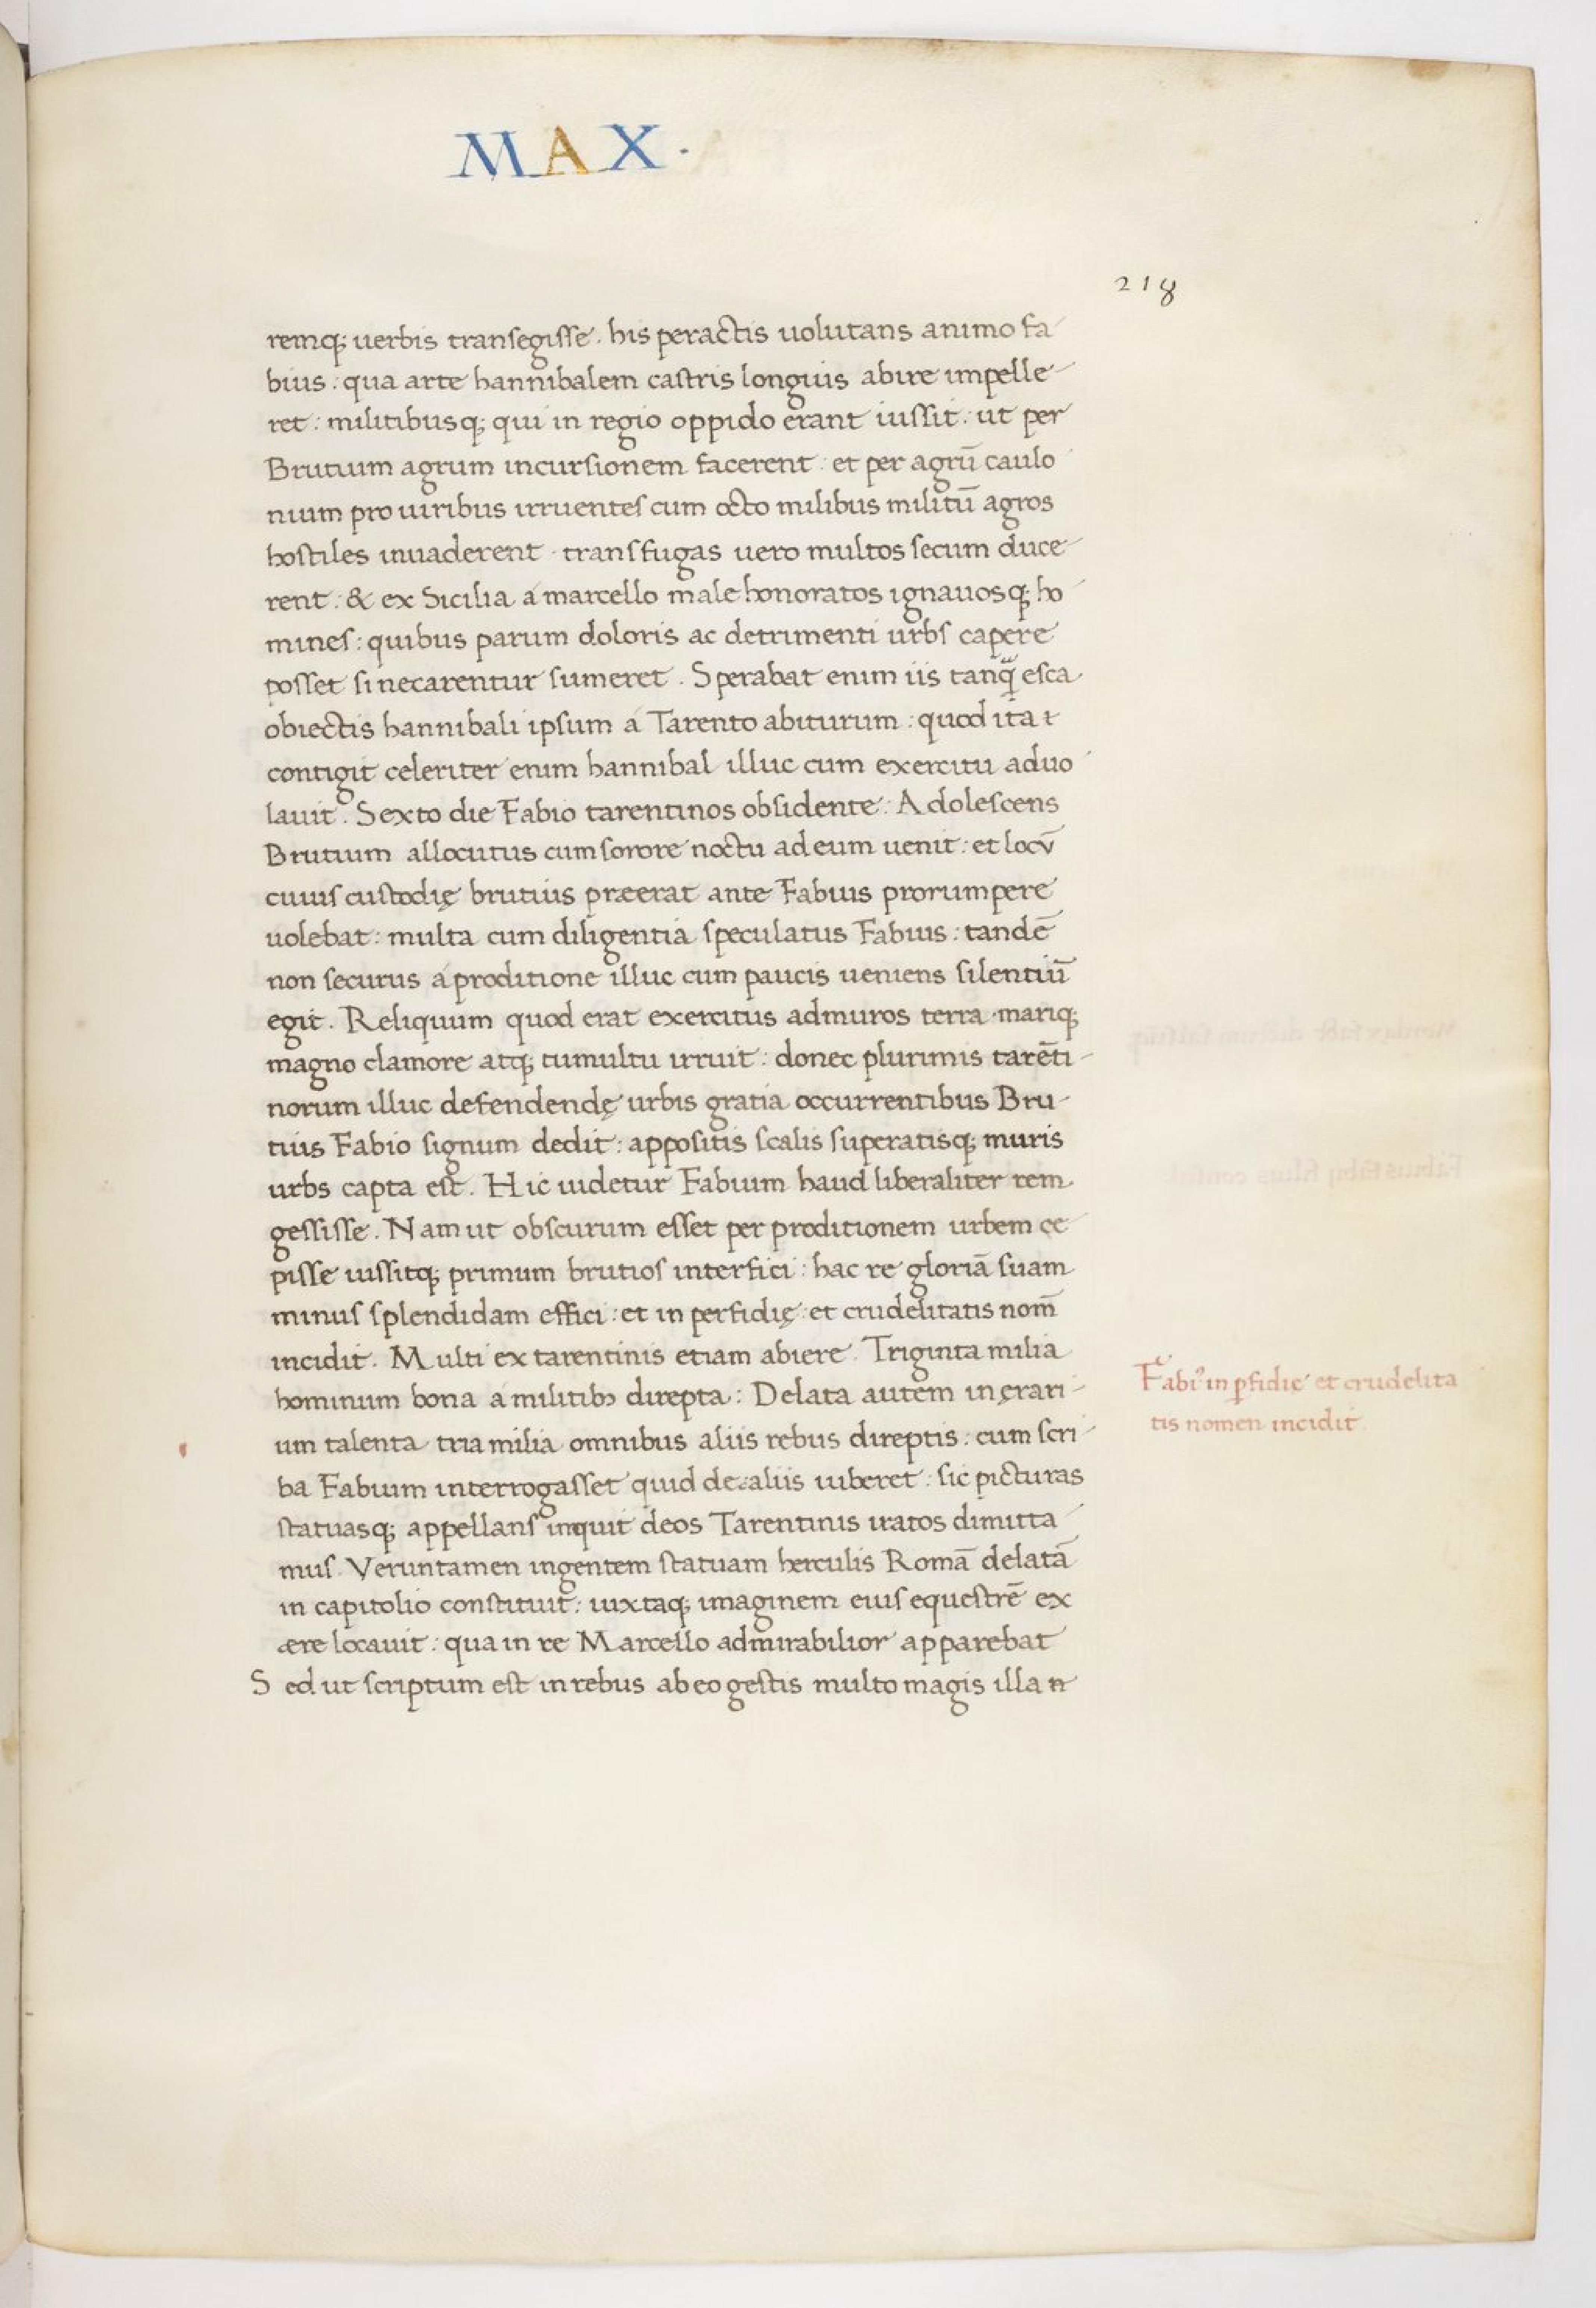 MAX·
218
remq; uerbis transegisse. his peractis uolutans animo fa
bius: qua arte hannibalem castris longius abire impelle
ret: militibusq; qui in regio oppido erant iussit: ut per
Brutium agrum incursionem facerent: et per agrū caulo
nium pro uiribus irruentes cum octo milibus militū agros
hostiles inuaderent. transfugas uero multos secum duce
rent: & ex Sicilia á marcello male honoratos ignauosq; ho
mines: quibus parum doloris ac detrimenti urbs capere
posset si necarentur sumeret. Sperabat enim iis tanq̃ esca
obiectis hannibali ipsum á Tarento abiturum: quod ita
contigit celeriter enim hannibal illuc cum exercitu aduo
lauit. Sexto die Fabio tarentinos obsidente: Adolescens
Brutium allocutus cum sorore noctu ad eum uenit: et locū
cuius custodię brutius præerat ante Fabius prorumpere
uolebat: multa cum diligentia speculatus Fabius: tandē
non securus á proditione illuc cum paucis ueniens silentiū
egit. Reliquum quod erat exercitus ad muros terra mariq;
magno clamore atq; tumultu irruit: donec plurimis tarēti-
norum illuc defendendę urbis gratia occurrentibus Bru-
tius Fabio signum dedit: appositis scalis superatisq; muris
urbs capta est. Hic uidetur Fabium haud liberaliter rem
gessisse. Nam ut obscurum esset per proditionem urbem ce
pisse iussitq; primum brutios interfici: hac re gloriā suam
minus splendidam effici: et in perfidię et crudelitatis nom̄
incidit. Multi ex tarentinis etiam abiere. Triginta milia
hominum bona á militibꝫ direpta: Delata autem in ęrari-
um talenta tria milia omnibus aliis rebus direptis: cum scri
ba Fabium interrogasset quid de aliis iuberet: sic picturas
statuasq; appellans inquit deos Tarentinis iratos dimitta
mus. Veruntamen ingentem statuam herculis Romā delatā
in capitolio constituit: iuxtaq; imaginem eius equestrē ex
ære locauit: qua in re Marcello admirabilior apparebat
Sed ut scriptum est in rebus ab eo gestis multo magis illa
Fabiꝰ in ꝑfidię et crudelita
tis nomen incidit.